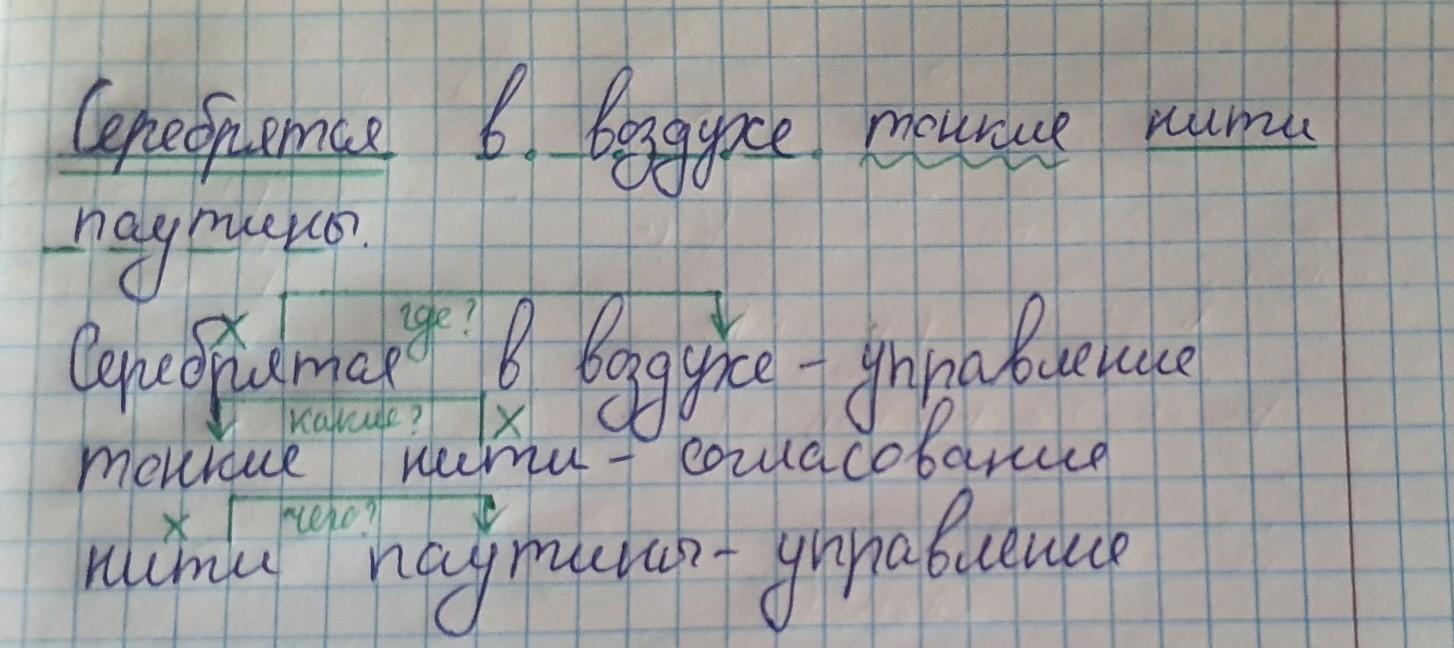 Серебрятся в воздухе тонкие нити
паутины.
где?
Серебрятся в воздухе - управление
какие?
тонкие нити - согласование
чего?
нити паутины - управление